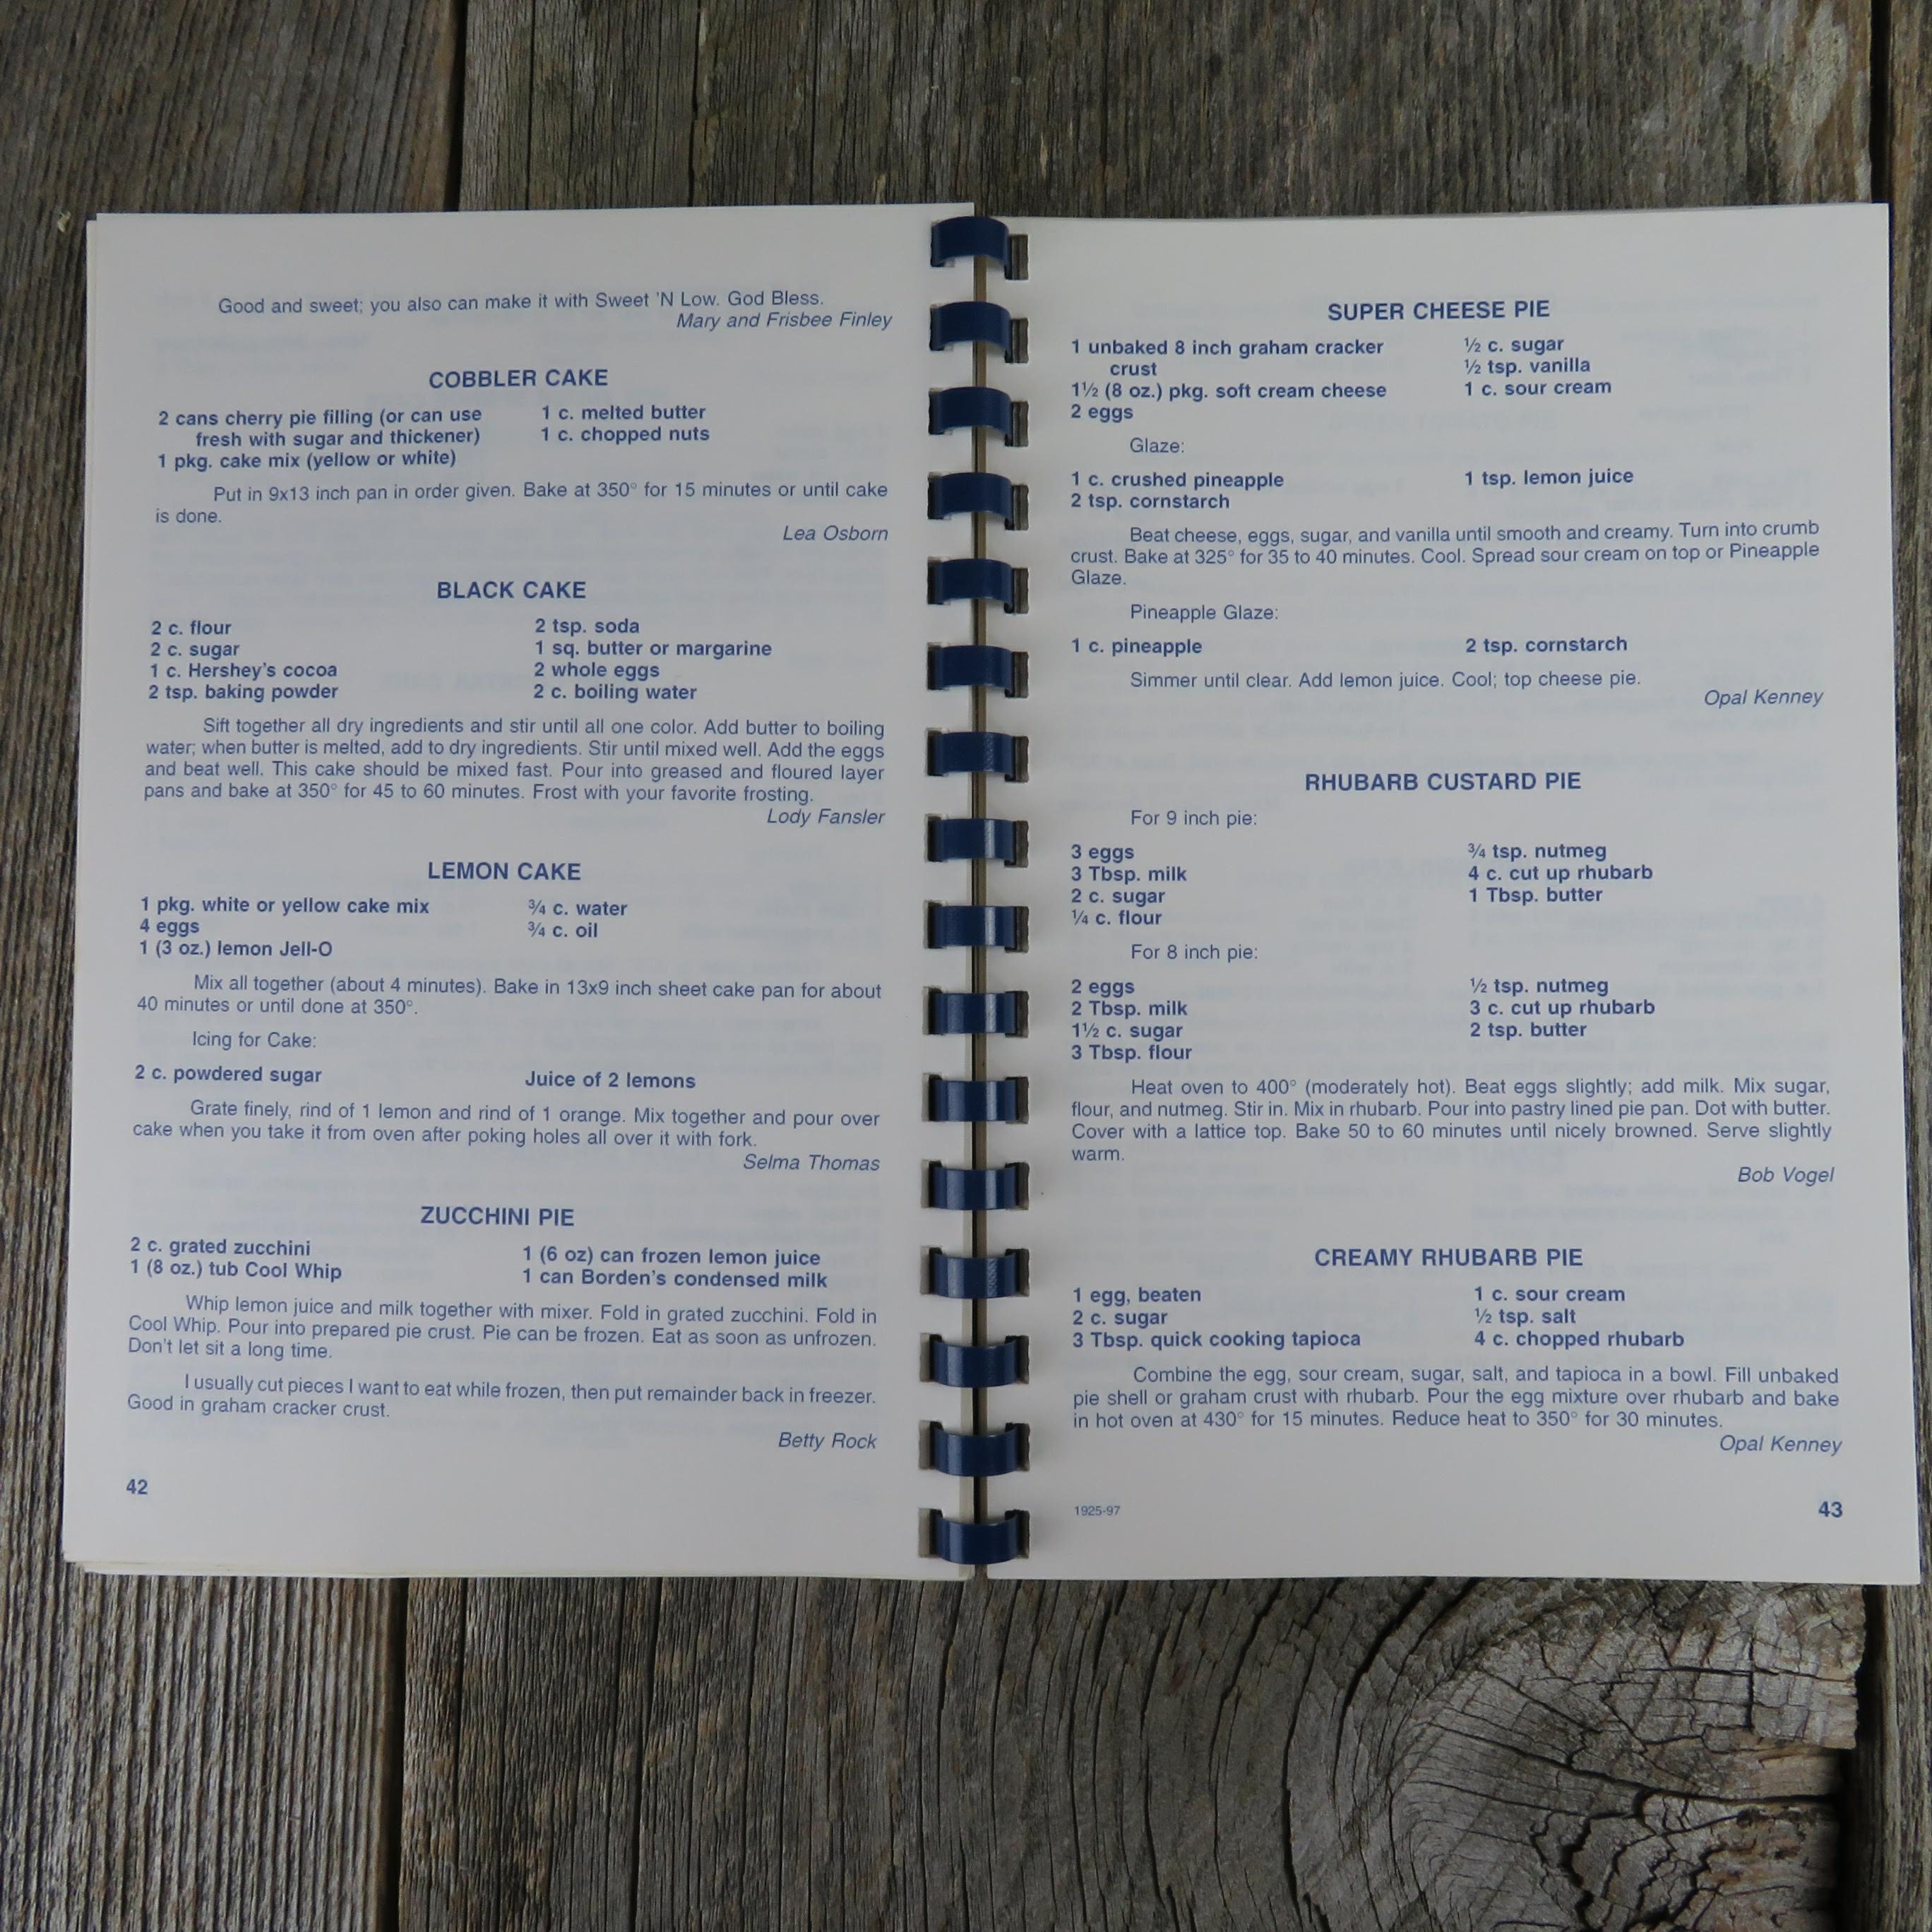 Good and sweet; you also can make it with Sweet 'N Low. God Bless.
Mary and Frisbee Finley
COBBLER CAKE
2 cans cherry pie filling (or can use
fresh with sugar and thickener)
1 pkg. cake mix (yellow or white)
1 c. melted butter
1 c. chopped nuts
Put in 9x13 inch pan in order given. Bake at 350° for 15 minutes or until cake
is done.
Lea Osborn
BLACK CAKE
2 c. flour
2 c. sugar
1 c. Hershey's cocoa
2 tsp. baking powder
2 tsp. soda
1 sq. butter or margarine
2 whole eggs
2 c. boiling water
Sift together all dry ingredients and stir until all one color. Add butter to boiling
water; when butter is melted, add to dry ingredients. Stir until mixed well. Add the eggs
and beat well. This cake should be mixed fast. Pour into greased and floured layer
pans and bake at 350° for 45 to 60 minutes. Frost with your favorite frosting.
Lody Fansler
LEMON CAKE
1 pkg. white or yellow cake mix
4 eggs
1 (3 oz.) lemon Jell-O
¾ c. water
¾ c. oil
Mix all together (about 4 minutes). Bake in 13x9 inch sheet cake pan for about
40 minutes or until done at 350°.
Icing for Cake:
2 c. powdered sugar
Juice of 2 lemons
Grate finely, rind of 1 lemon and rind of 1 orange. Mix together and pour over
cake when you take it from oven after poking holes all over it with fork.
Selma Thomas
ZUCCHINI PIE
2 c. grated zucchini
1 (8 oz.) tub Cool Whip
1 (6 oz) can frozen lemon juice
1 can Borden's condensed milk
Whip lemon juice and milk together with mixer. Fold in grated zucchini. Fold in
Cool Whip. Pour into prepared pie crust. Pie can be frozen. Eat as soon as unfrozen.
Don't let sit a long time.
I usually cut pieces I want to eat while frozen, then put remainder back in freezer.
Good in graham cracker crust.
Betty Rock
42
SUPER CHEESE PIE
1 unbaked 8 inch graham cracker
crust
1½ (8 oz.) pkg. soft cream cheese
2 eggs
½ c. sugar
½ tsp. vanilla
1 c. sour cream
Glaze:
1 c. crushed pineapple
2 tsp. cornstarch
1 tsp. lemon juice
Beat cheese, eggs, sugar, and vanilla until smooth and creamy. Turn into crumb
crust. Bake at 325° for 35 to 40 minutes. Cool. Spread sour cream on top or Pineapple
Glaze.
Pineapple Glaze:
1 c. pineapple
2 tsp. cornstarch
Simmer until clear. Add lemon juice. Cool; top cheese pie.
Opal Kenney
RHUBARB CUSTARD PIE
For 9 inch pie:
3 eggs
3 Tbsp. milk
2 c. sugar
¼ c. flour
¾ tsp. nutmeg
4 c. cut up rhubarb
1 Tbsp. butter
For 8 inch pie:
2 eggs
2 Tbsp. milk
1½ c. sugar
3 Tbsp. flour
½ tsp. nutmeg
3 c. cut up rhubarb
2 tsp. butter
Heat oven to 400° (moderately hot). Beat eggs slightly; add milk. Mix sugar,
flour, and nutmeg. Stir in. Mix in rhubarb. Pour into pastry lined pie pan. Dot with butter.
Cover with a lattice top. Bake 50 to 60 minutes until nicely browned. Serve slightly
warm.
Bob Vogel
CREAMY RHUBARB PIE
1 egg, beaten
2 c. sugar
3 Tbsp. quick cooking tapioca
1 c. sour cream
½ tsp. salt
4 c. chopped rhubarb
Combine the egg, sour cream, sugar, salt, and tapioca in a bowl. Fill unbaked
pie shell or graham crust with rhubarb. Pour the egg mixture over rhubarb and bake
in hot oven at 430° for 15 minutes. Reduce heat to 350° for 30 minutes.
Opal Kenney
1925-97
43